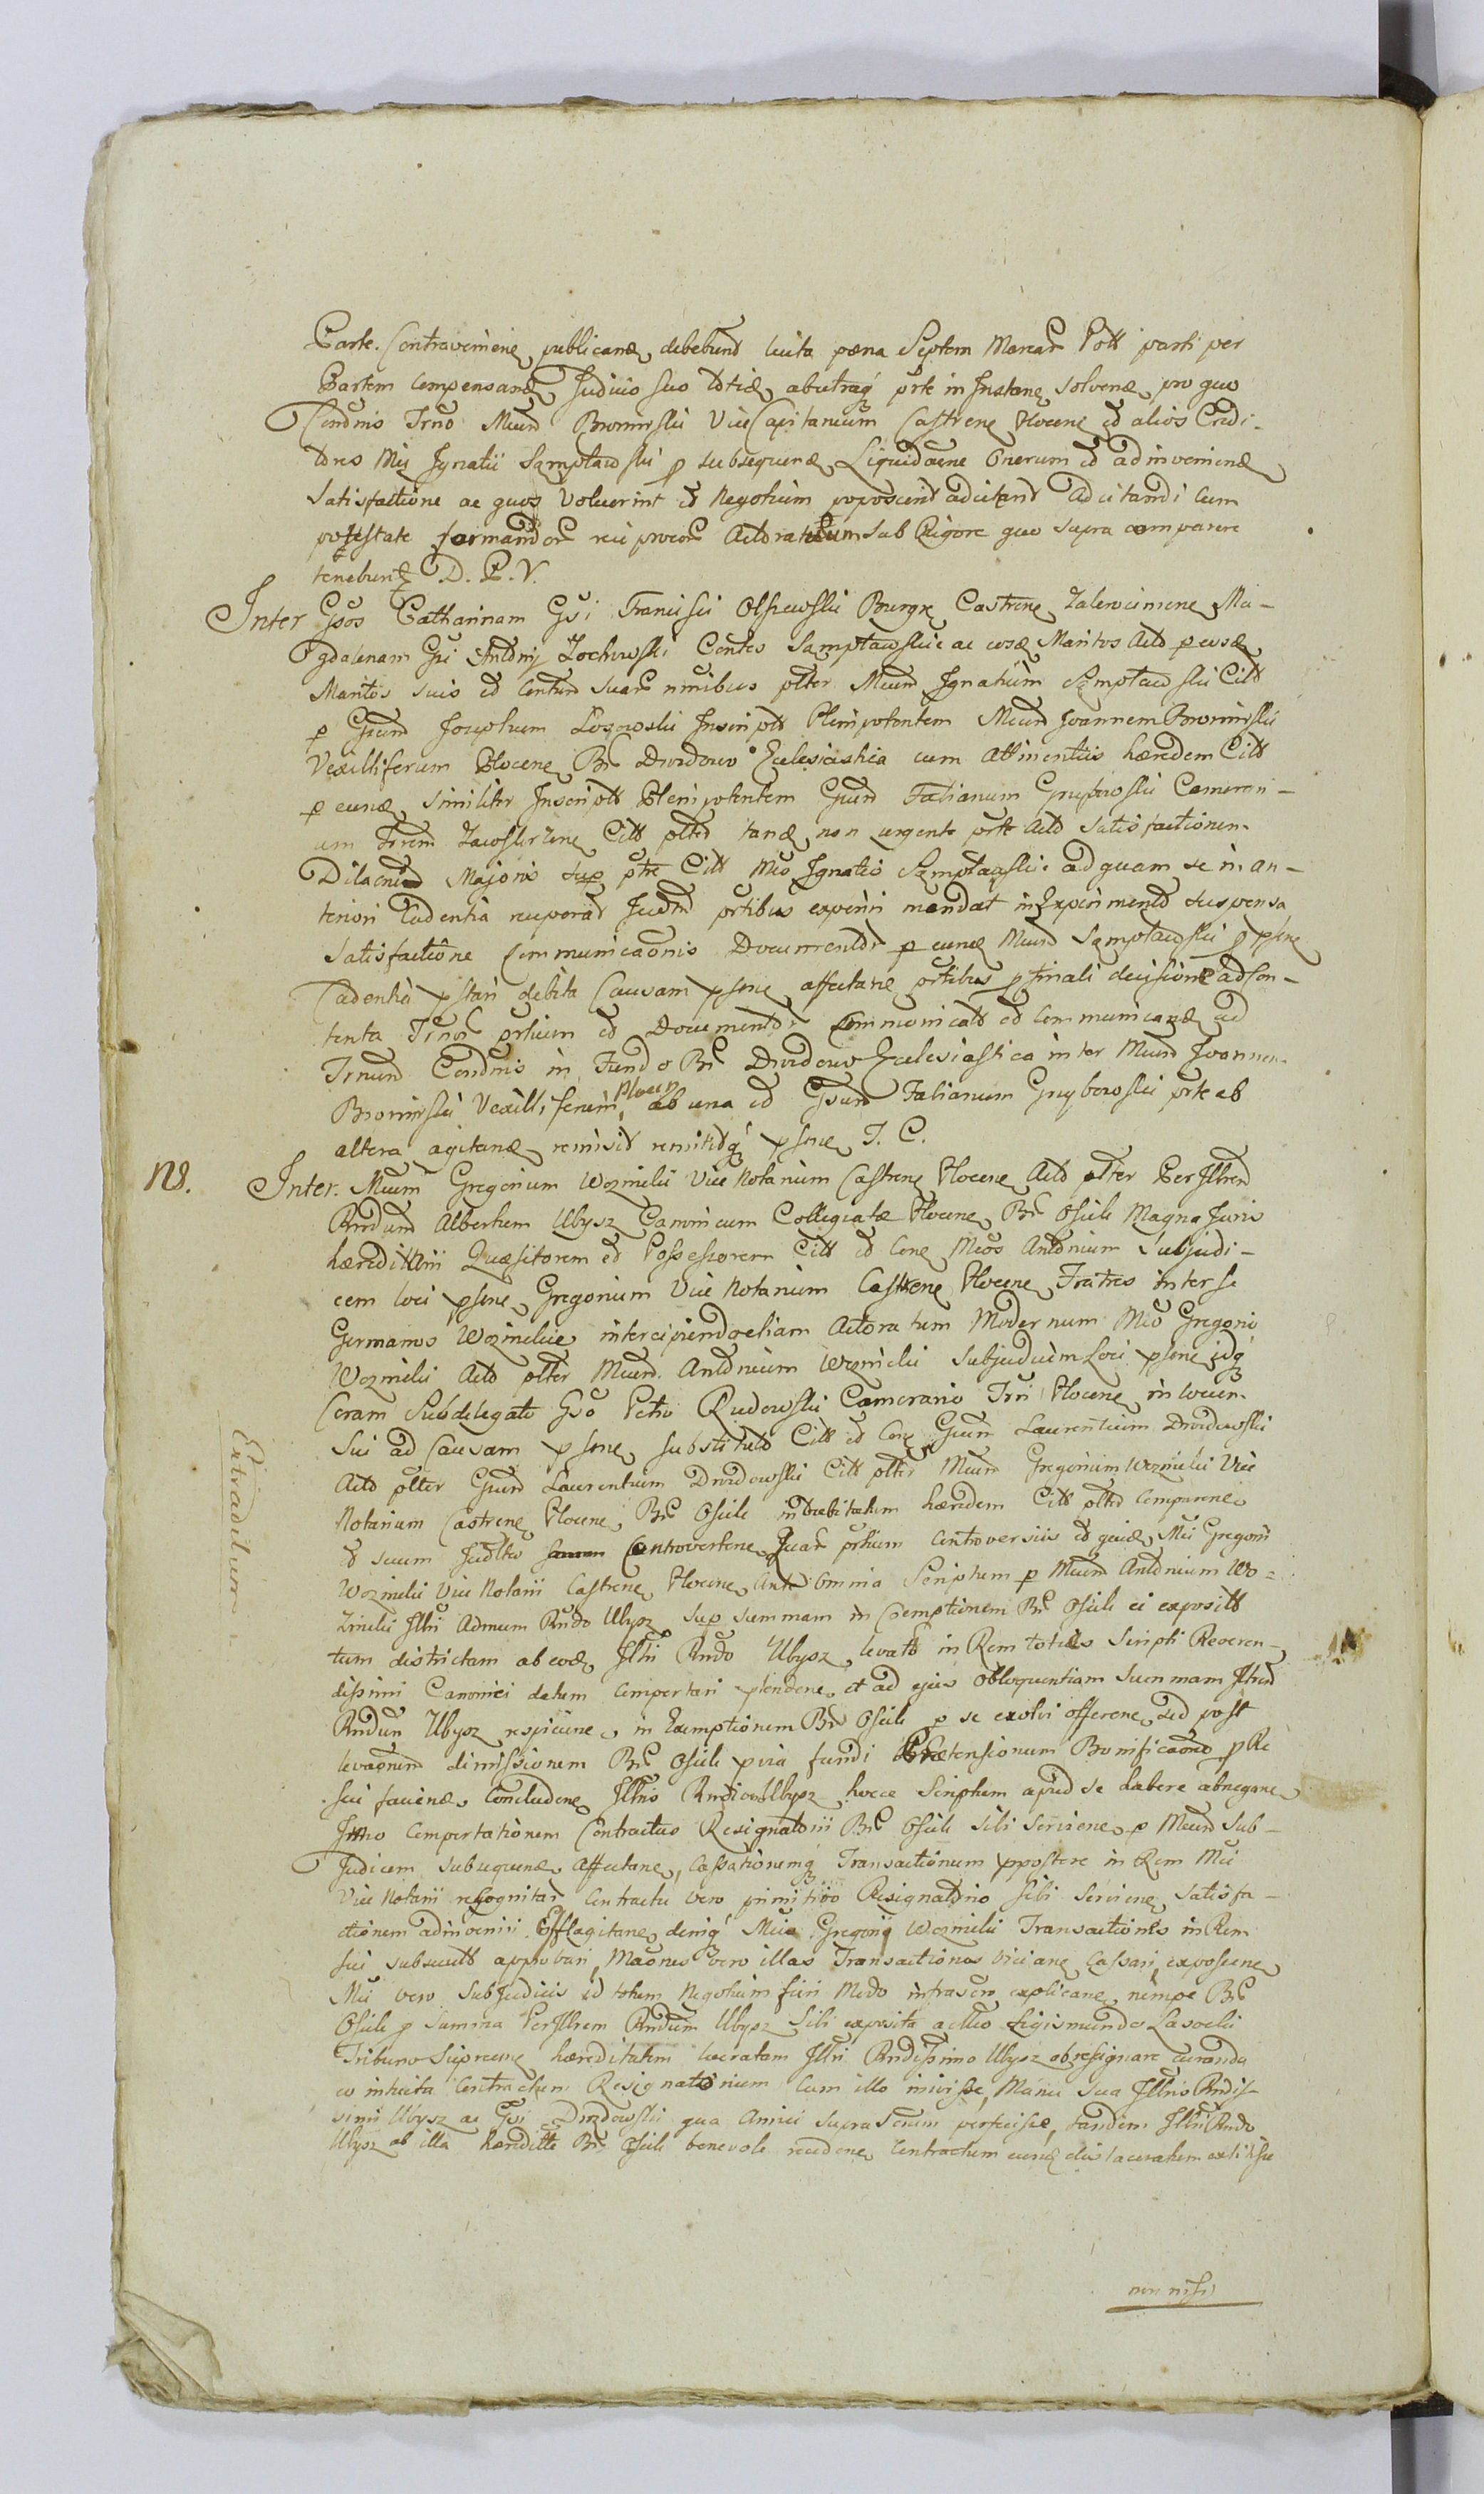 Parte. Contraveniene publicanæ debebunt luita pæna Septem Marcar Poll parti per
Partem compensanæ Judicio suo totiæ ab utraq prte in Instane solvenæ, pro quo
Condnis Trno Mcum Bromirski Vice Capitaneum Castrene Plocene et alios Credi-
tores Mci Ignatii Samplawski p subsequenæ Liquidaone Onerum et ad invenienæ
Satisfactione ac quos Voluerint et Negotium poposcerit adcitent Adcitandi cum
potestate formandor reciprocor Actoratuum sub Rigore quo supra comparere
tenebunt D. P. V.
Inter Gsos Catharinam Gsi Francisci Olszewski Burgr Castrene Zakroczimene Ma-
gdalenam Gsi Antonij Zochowski Contes Samplawskie ac eosæ Maritos Acto p eosæ
Maritos suis et Contum suar nnibus plter Mcum Ignatium Samplawski Citt
p Gsum Josephum Lossowski Inscriptt Plenipotentem Mcum Joannem Bromirski
Vexilliferum Plocene Br Drozdowo Ecclesiastica cum Attinentiis hæredem Citt
p eunæ similiter Inscriptt Plenipotentem Gsum Fabianum Grzybowski Camerari-
um Trrem Zawskrzene Citt plted tanæ non urgente prte Acto Satisfactionem
Dilaonis Majoris sup prte Citt Mco Ignatio Samplawski ad quam se in an-
teriori Cadentia reuperat Judm prtibus experiri mandat in Experimento suspensa
Satisfactione Communicaonis Documentor p eunæ Mcum Samplawski p psene
Cadentia pstari debita Causam psene affectane prtibus p finali decisione ad Con-
tenta Trnor prtium et Documentor Communicator et Communicanæ ad
Trnum Condnis in Fundo Br Drozdowo Ecclesiastica inter Mcum Joannem
Bromirski Vexilliferum Plocen ab una et Gsum Fabianum Grzybowski prte ab
altera agitanæ remisit remititq psene T. C.
N8. Inter. Mcum Gregorium Woznicki Vice Notarium Castrene Plocene Acto plter Per Illrem
Rndum Albertum Ubysz Canonicum Collegiatæ Plocene Br Osiek Magna Juris
hæreditarii Quæsitorem et Possessorem Citt et Cone Mcos Antonium Subjudi-
cem loci psene, Gregorium Vice Notarium Castrene Plocene Fratres inter se
Germanos Woznickie intercipiendo etiam Actoratum Modernum Mco Gregorio
Woznicki Acto plter Mcum Antonium Woznicki Subjudicem Loci psene idq
Coram Subdelegato Gso Petro Rudowski Camerario Trri Plocene in locum
Sui ad Causam psene substituto Citt et Cone Gsum Laurentium Drozdowski
Acto plter Gsum Laurentium Drozdowski Citt plter Mcum Gregorium Woznicki Vice
Notarium Castrene Plocene, Br Osiek indubitatum hæredem Citt plted comparene
et suum Judltu Controvertene Quar prtium controversiis et quiæ Mci Gregorii
Woznicki Vice Notarii Castrene Plocene Ante Omnia Scriptum p Mcum Antonium Wo-
znicki Illri Admum Rndo Ubysz sup summam in Coemptionem Br Osiek ei expositt
tum districtam ab eoæ Illri Rndo Ubysz levatt in Rem totius Scripti Reveren-
dissimi Canonici datum comportari ptendene et ad ejus obloquentiam summam Illrum
Rndum Ubysz respiciene, in Exemptionem Br Osiek p se exolvi offerene, sed post
levaonem dimissionem Br Osiek pvia fundi Prætensionum Bonificaone p Re
sui faciene, Concludene Illrio Rndio Ubysz hocce Scriptum apud se habere abnegane
Immo Comportationem Contractus Resignatorii Br Osiek sibi Serviene p Mcum Sub-
Judicem subsequenæ Affectane, Cassationemq Transactionum ppostere in Rem Mci
Vice Notarii recognitar contractu vero primitivo Resignatorio sibi serviene Satisfa-
ctionem adinveniri Efflagitane, deniq Mcio Gregorij Woznicki Transactiones in Rem
sui subsecutt approbari, Maones vero illas Transactiones viciane Cassari, exposcene,
Mci vero Subjudicis id totum Negotium fieri Modo infrascro explicane nempe Br
Osiek p summa PerIllrem Rndum Ubysz sibi exposita a Mco Sigismundo Lasocki
Tribuno Supreene hæreditatem lucratam Illri Rndissimo Ubysz obresignare curando
eo intuita Contractum Resignatorium cum illo inivisse, Manu sua Illrio Rndis-
simi Ubysz ac Gsi Drozdowski qua Amici supra scrium perfecisse, tandem Illri Rndo
Ubysz ab illa hæreditte Br Osiek benevole recedene Contractum eunæ dislaceratum extitisse
non nisi
Extraditum